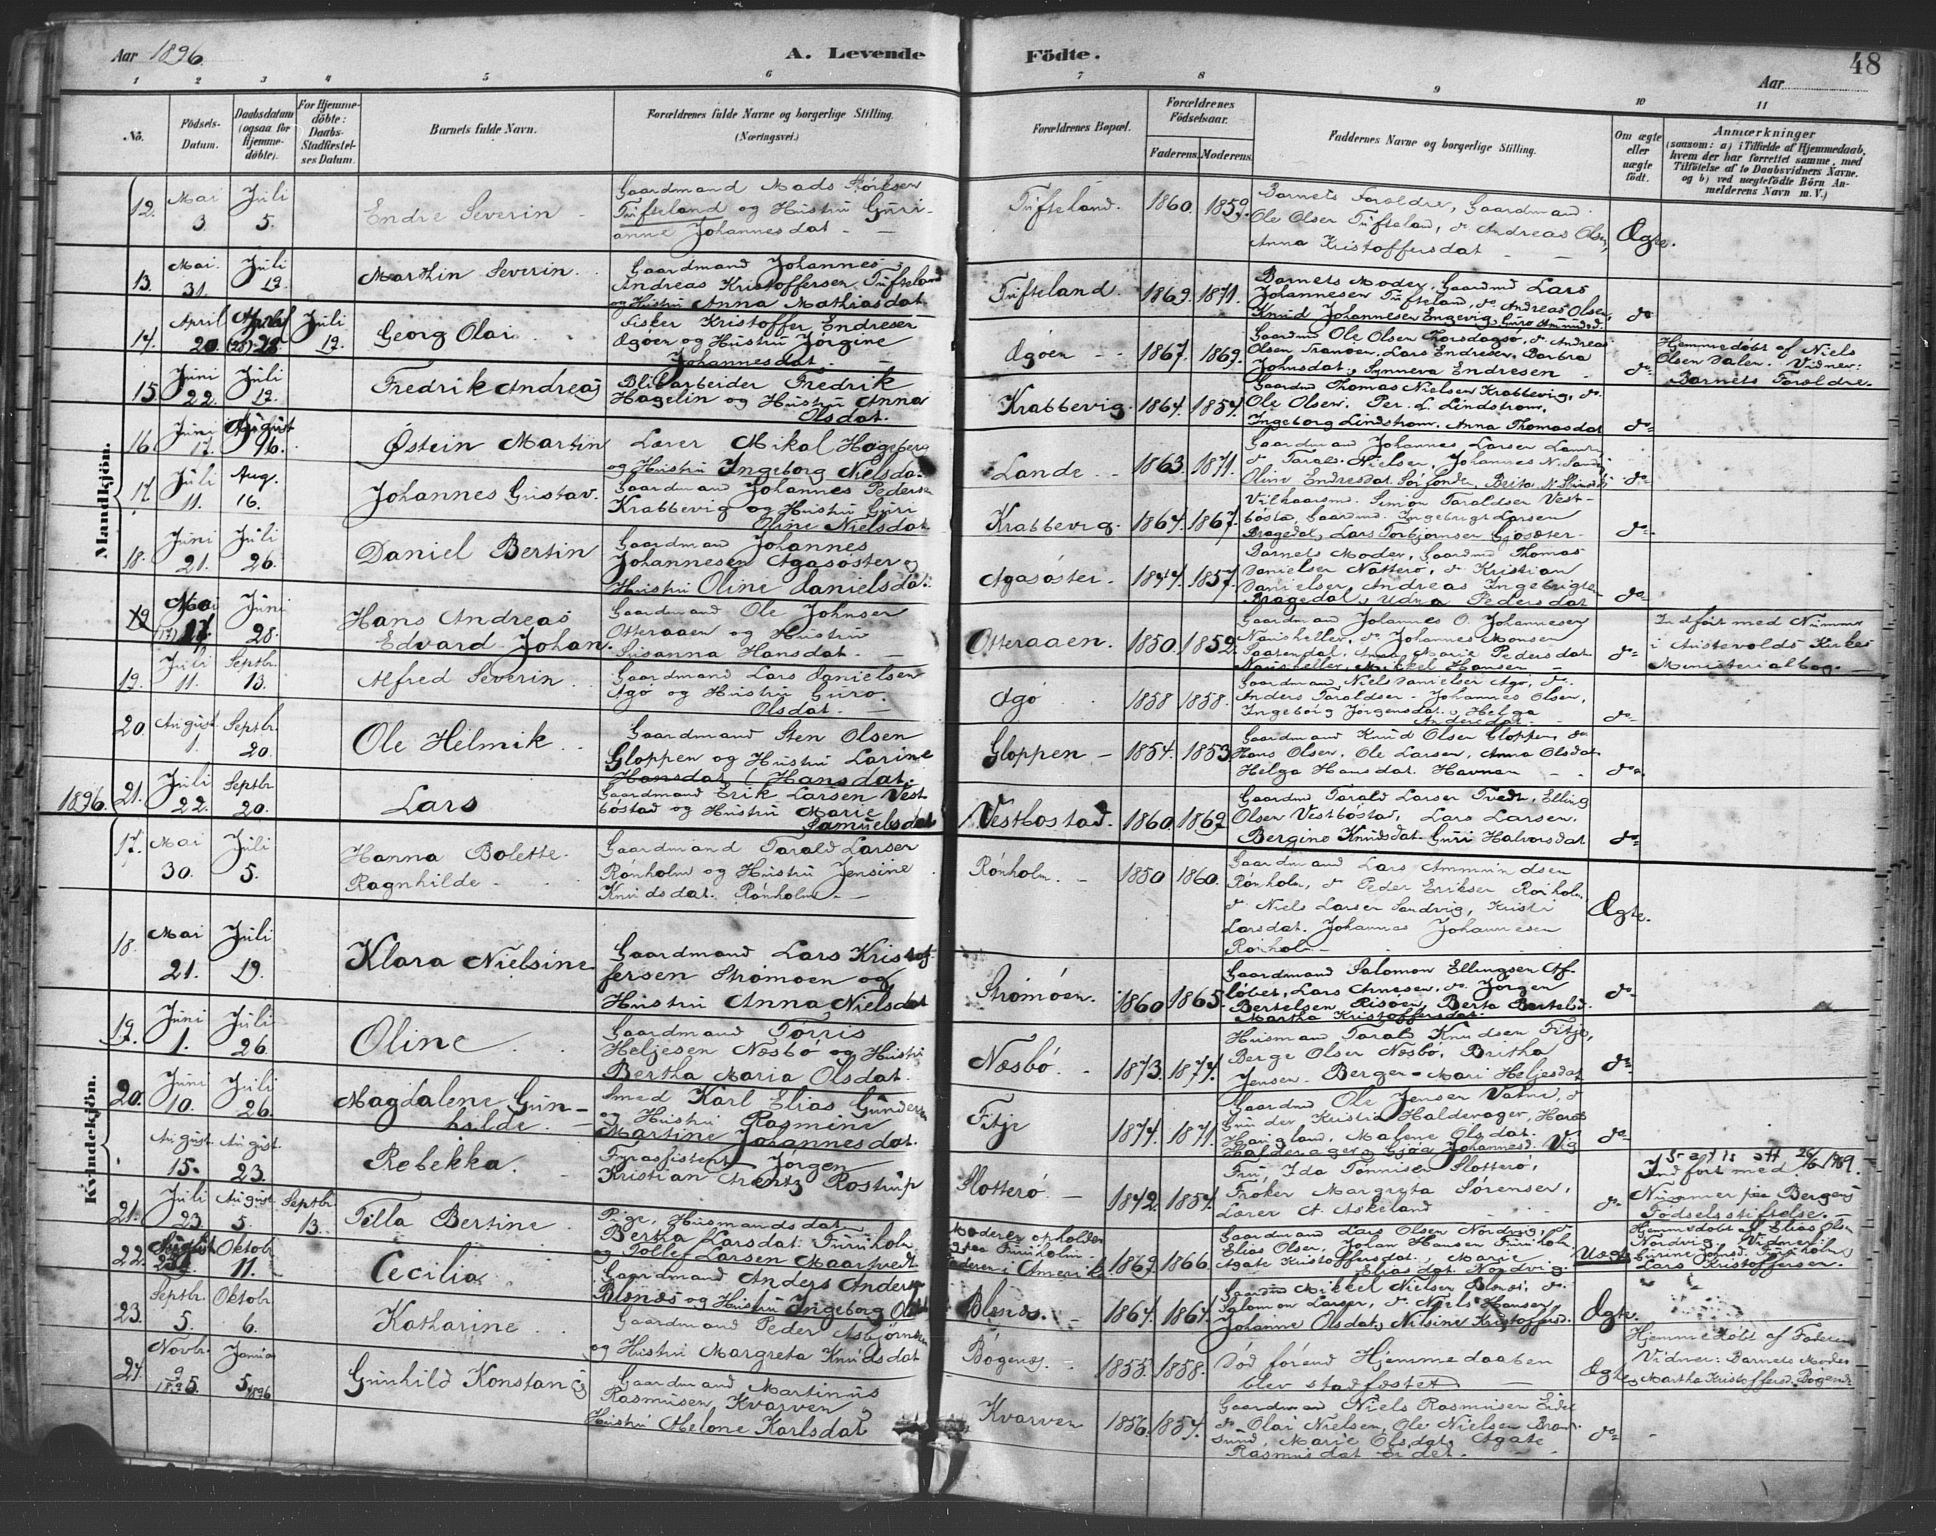 Aar 1896.
A. Levende Födte.
48
Aar
1 2 3 4 5 6 7 8 9 10 11
No.
Födsels-Datum.
Daabsdatum (ogsaa for Hjemme-döbte).
For Hjemme-döbte: Daabs-Stadfæstel-ses Datum.
Barnets fulde Navn.
Forældrenes fulde Navne og borgerlige Stilling. (Næringsvei.)
Forældrenes Bopæl.
Forældrenes Födselsaar.
Faderens. Moderens.
Faddernes Navne og borgerlige Stilling.
Om ægte eller uægte födt.
Anmærkninger
(saasom: a) i Tilfælde af Hjemmedaab,
hvem der har forrettet samme, med
Tilföielse af to Daabsvidners Navne.
og b) ved uægtefödte Börn An-
melderens Navn m. V.)
Mandkjön.
12. Mai 3. Juli 5. Endre Severin
Gaardmand Mads
Tufteland og Hustru Guri-
anne Johannesdat.
Tufteland. 1860. 1859.
Barnets Foreldre, Gaardmand
Ole Olsen Tufteland, do Andreas Olsen,
Anna Kristoffersdat
Ægte.
13. Mai 31. Juli 12. Marthin Severin.
Gaardmand Johannes
Andreas Kristoffersen Tufteland
og Hustru Anna Mathiasdat
Tufteland. 1869. 1871.
Barnets Moder, Gaardmd Lars
Johannesen Tufteland, do Andreas Olsen,
Knud Johannesen Engevig, Guro
do
14. April 20. April 28. Juli 12. Georg Olai
Fisker Kristoffer Endresen
Øgøen og Hustru Jørgine
Johannesdat.
Øgøen 1867. 1869.
Gaardmd Ole Olsen do Andreas
Olsen Lars Endresen, Barbra
Johnsdat, Synneva Endresen
do
Hjemmedøbt af Niels
Olsen Vidner:
Barnets Forældre.
15. Juni 22. Juli 12. Fredrik Andreas
Fredrik
Hagelin og Hustru Anna
Olsdat.
Krabbevig. 1864. 1857.
Gaardmd Thomas Nielsen Krabbevig, do
Ole Olsen, Per. L. Lindstrøm,
Ingeborg Lindstrøm, Anna Thomasdat
do
16. Juni 17. August 16. Østein Martin
Lærer Mikal Hageberg
og Hustru Ingeborg Nielsdat
Lande 1863. 1871.
Gaardmand Johannes Larsen
do Tarald Nielsen, Johannes N.
Oline Endresdat
do
17. Juli 11. Aug. 16. Johannes Gustav.
Gaardmand Johannes Pedersen
Krabbevig og Hustru Guri
Oline Nielsdat
Krabbevig. 1864. 1867.
Simon Taraldsen Vest-
bøsta, Gaardmd Ingebrigt Larsen
Bragedal, Lars Torbjørnsen
do
18. Juni 21. Juli 26. Daniel Bertin
Gaardmand Johannes
Johannesen Agasøster og
Hustru Oline Danielsdat.
Agasøster. 1847. 1857.
Barnets Moder, Gaardmd Thomas
Danielsen do Kristian
Danielsen, Andreas
Bragedal, Pedersdat
do
Mai 17. Juni 28. Hans Andreas
Edvard Johan.
Gaardmand Ole Johnsen
Otteraaen og Hustru
Susanna Hansdat.
Otteraaen. 1850. 1852.
Gaardmand Johannes O. Johannesen
do Johannes Monsen
Marie Pedersdat
Mikkel Hansen
do
Indført med Nummer
i Austevolds Kirkes
Ministerialbog.
19. Juli 11. Septbr. 13. Alfred Severin
Gaardmand Lars Danielsen
Agø og Hustru Guro
Olsdat.
Agø 1858 1858.
Gaardmand Niels Danielsen Agø, do
Anders Taraldsen Johannes Olsen,
Ingeborg Jørgensdat, Helga
Andersdat.
do
20. August 1. Septbr. 20. Ole Helmik
Gaardmand Sten Olsen
Gloppen og Hustru Larine
Hansdat
Gloppen 1854. 1853.
Gaardmand Knud Olsen Gloppen, do
Hans Olsen, Ole Larsen, Anna Olsdat
Helga Hansdat
do
1896. 21. Juli 22. Septbr 20. Lars
Gaardmand Erik Larsen Vest-
bøstad og Hustru Marie
Samuelsdat
Vestbøstad. 1860. 1862
Gaardmd Tarald Larsen Tvedt, Elling
Olsen Vestbøstad, Lars Larsen,
Bergine Knudsdat Guri Halvorsdat
do
Kvindekjön.
17. Mai 30. Juli 5. Hanna Bolette
Ragnhilde
Gaardmand Tarald Larsen
Rønholm og Hustru Jensine
Knudsdat. Rønholm
Rønholm. 1850 1860.
Gaardmand Lars
Rønholm, do Peder Eriksen Rønholm,
do Niels Larsen Sandvig, Kristi
Larsdat, Johannas Johannesen
Rønholm
Ægte.
18. Mai 21. Juli 19. Klara Nielsine
Gaardmand Lars Kristof-
fersen Strømøen og
Hustru Anna Nielsdat
Strømøen. 1860 1865.
Gaardmand Salomon Ellingsen
Lars Arnesen, do Jørgen
Bertelsen Risøen, Berta Bertelsd.
Martha Kristoffersdat.
do
19. Juni 1. Juli 26. Oline
Gaardmand Torris
Heljesen Næsbø og Hustru
Bertha Maria Olsdat.
Næsbø 1873. 1874.
Husmand Tarald Knudsen Fitje,
Berge Olsen Næsbø, Britha
Jensen Mari Heljesdat
do
20. Juni 10. Juli 26. Magdalene Gun-
hilde.
Smed Karl Elias Gundersen
og Hustru Rasmine
Martine Johannesdat.
Fitje 1874. 1871.
Gaardmd Ole Jensen Vatne, do
Kristian
Haugland, Malene Olsdat
do
August 15. August. 23. Rebekka.
Fyrassistent Jørgen
Kristian Arentz Rostrup
Slotterø 1842. 1854.
Fru Ida Tønnisen Slotterø,
Frøken Margreta Sørensen,
Lærer A. Askeland
do
1909.
Indført med
Nummer paa Bergens
Fødselsstiftelse.
21. Juli 23. August 5. Septbr 13. Tilla Bertine
Pige, Husmandsdat
Bertha Larsdat Furuholm
og Tollef Larsen Maartvedt
Moderen opholder
sig paa Furuholm
Faderen i Amerika 1869. 1866.
Gaardmand Lars Olsen Nordvig, do
Elias Olsen, Johan Hansen Furuholm
Agate Kristoffersdat Marie
Eliasdat Nordvig
Uægte
Hjemmedøbt af Elias Olsen
Nordvig, Vidner:
Lars Kristoffersen.
22. August Oktobr. 11. Cecilia
Gaardmand Anders Anders
Blænæs og Hustru Ingeborg
Blænæs. 1864. 1867.
Mikkel Nielsen Blænæs, do
Salomon Larsen, do Niels Hansen
Johanne Olsdat, Nilsine Kristoffersd.
Ægte.
23. Septbr. 5. Oktobr. 6. Katharine
Gaardmand Peder Asbjørnsen
og Hustru Margreta Knudsdat
Bøgenes. 1855. 1858.
Død førend Hjemmedaaben
blev stadfæstet
Ægte
Hjemmedøbt af Faderen
Vidner: Barnets Moder
Martha Kristoffersd.
24. Novbr. 9 1895. Januar 5 1896 Gunhild Konstance
Gaardmand Martinus
Rasmusen Kvarven og
Hustru Helene Karlsdat
Kvarven 1856. 1857.
Gaardmand Niels Rasmusen
do Olai Nielsen, Ole Nielsen
sund, Marie Olsdat, Agate
Rasmusdat
do